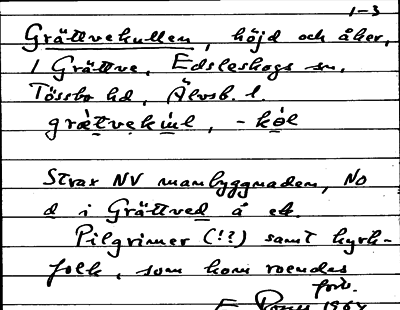 1-3
Grättvekullen, höjd och åker,
i Grättve, Edsleskogs sn.
Tössbo hd, Älvsb. l.
Strax NV manbyggnaden, No
d i Grättved å ek.
Pilgrimer (!?) samt kyrk-
folk, som kom roendes